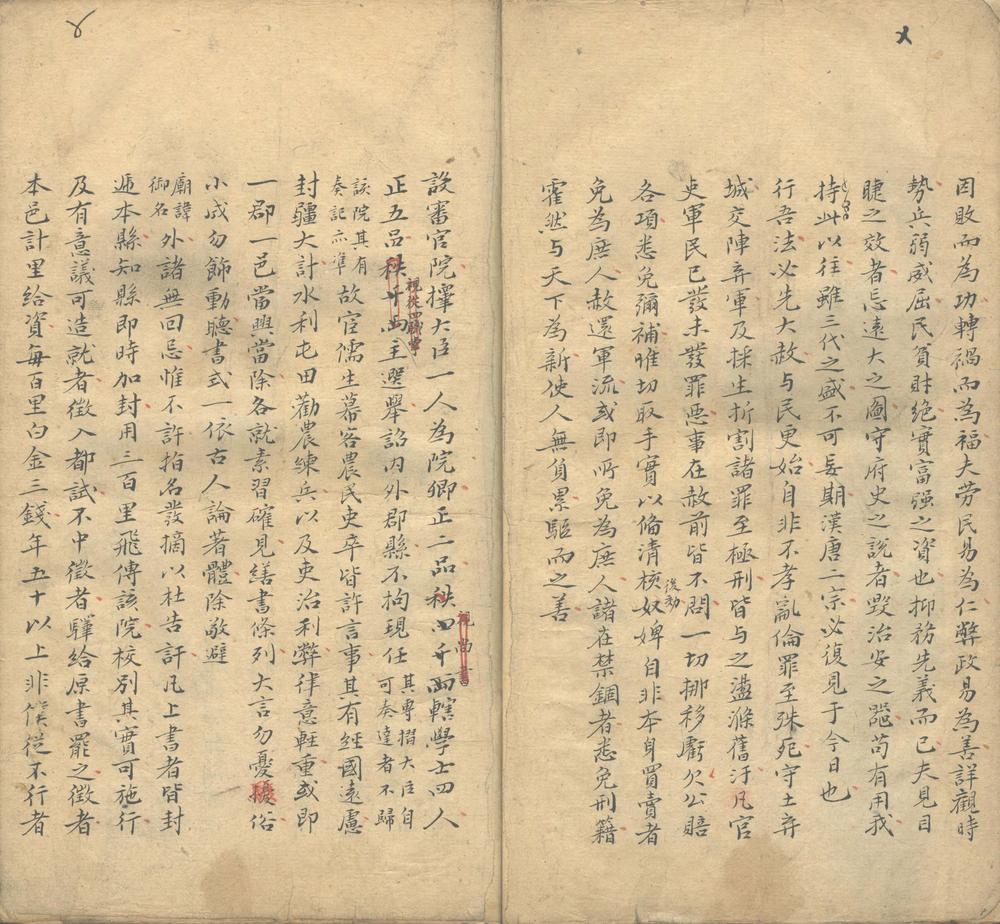 因敗而為功轉禍而為福夫劳民易為仁弊政易為善詳觀時
勢兵弱威屈民貧財絶實富强之資也抑務先義而已夫見目
睫之效者忘遠大之圖守府史之説者毀治安之謡苟有用我
持此以往雖三代之盛不可妄期漢唐二宗必復見于今日也
行吾法必先大赦与民更始自非不孝亂倫罪至殊死守土弃
城交陣弃軍及採生折割諸罪至極刑皆与之盪滌舊汙凡官
吏軍民已發未發罪惡事在赦前皆不問一切挪移虧欠公賠
各項悉免彌補唯切取手實以俻清核奴婢自非本身買賣者
後効
免為庶人赦還軍流或即所免為庶人諸在禁錮者悉免刑籍
霍然与天下為新使人無負累驅而之善
設審官院擇大臣一人為院卿正二品秩四千兩轄學士四人
視尚書
正五品秩千両主選舉詔内外郡縣不拘現任其專摺大臣自可奏達者不歸
該院其有奏記亦準故官儒生幕客農民吏卒皆許言事其有經國遠慮
封疆大計水利屯田勸農練兵以及吏治利弊律意輕重或即
一郡一邑當興當除各就素習確見繕書條列大言勿憂擾俗
小成勿飾動聽書式一依古人論著體除敬避
廟諱御名外諸無回忌惟不許指名發摘以杜告訐凡上書者皆封
逓本縣知縣即時加封用三百里飛傳該院校别其實可施行
及有意議可造就者徵入都試不中徵者驛給原書罷之徵者
本邑計里給資每百里白金三錢年五十以上非僕從不行者